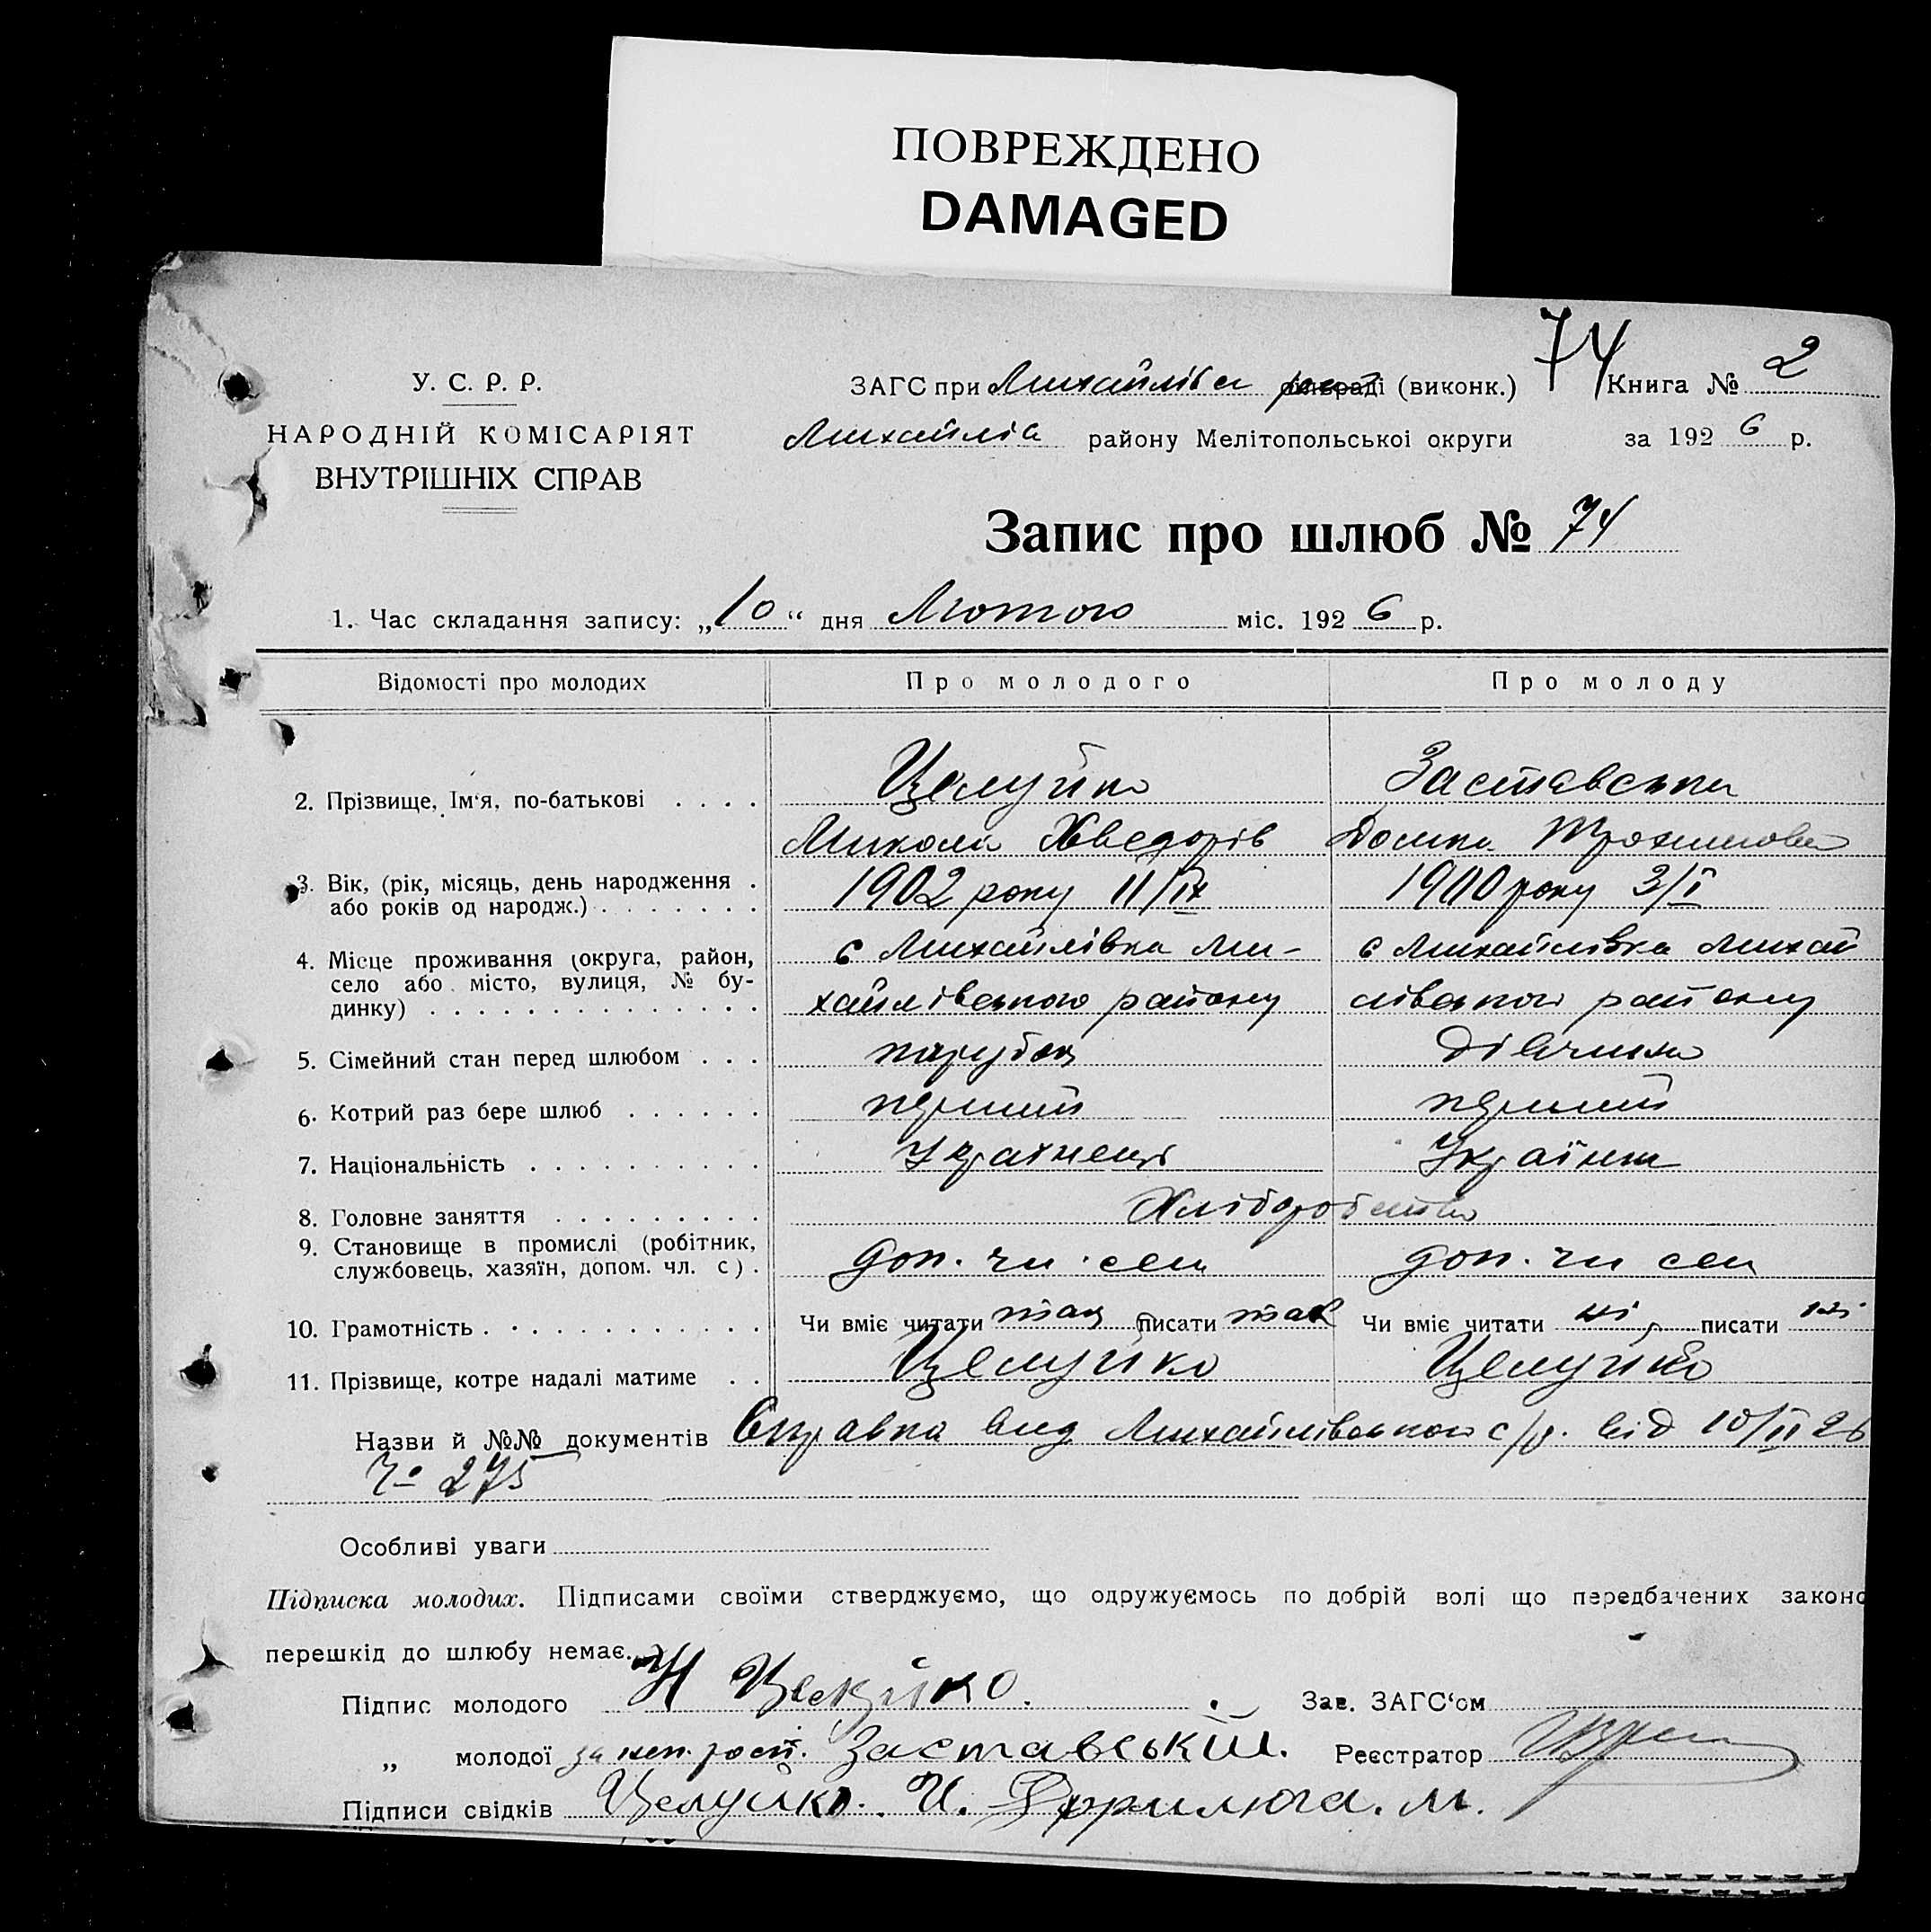 ПОВРЕЖДЕНО
DAMAGED
74
У. С. Р. Р.
ЗАГС при Михайлівск (виконк.) Книга № 2
НАРОДНІЙ КОМІСАРІЯТ
Михайлів району Мелітопольської округи за 1926 р.
ВНУТРІШНІХ СПРАВ
Запис про шлюб № 74
1. Час складання запису: „10“ дня Лютого міс. 1926 р.
Відомості про молодих Про молодого Про молоду
2. Прізвище, Ім'я, по-батькові . . . . Целуйко Заставська
Микола Хведорів Домка Трохимова
3. Вік, (рік, місяць, день народження . 1902 року 11/IX 1910 року 3/I
або років од народж.) . . . . . . .
4. Місце проживання (округа, район, с Михайлівка Ми- с Михайлівка Михай
село або місто, вулиця, № бу-
динку) . . . . . . . . . . . . . . хайлівського району лівського району
5. Сімейний стан перед шлюбом . . . парубок дівчина
6. Котрий раз бере шлюб . . . . . . перший перший
7. Національність . . . . . . . . . . Українець Українка
8. Головне заняття . . . . . . . . . Хліборобство
9. Становище в промислі (робітник,
службовець, хазяїн, допом. чл. с) . доп. чл. сем доп. чл сем
10. Грамотність . . . . . . . . . . . . Чи вміє читати так писати так Чи вміє читати ні, писати ні
11. Прізвище, котре надалі матиме . . Целуйко Целуйко
Назви й №№ документів Справка вид Михайлівською с/р. від 10/II 26
№ 275
Особливі уваги
Підписка молодих. Підписами своїми стверджуємо, що одружуємось по добрій волі що передбачених законо
перешкід до шлюбу немає.
Підпис молодого Н Целуйко. Зав. ЗАГС'ом
„ молодої за неп. росп. Заставський. Реєстратор
Підписи свідків Целуйко. И. М.